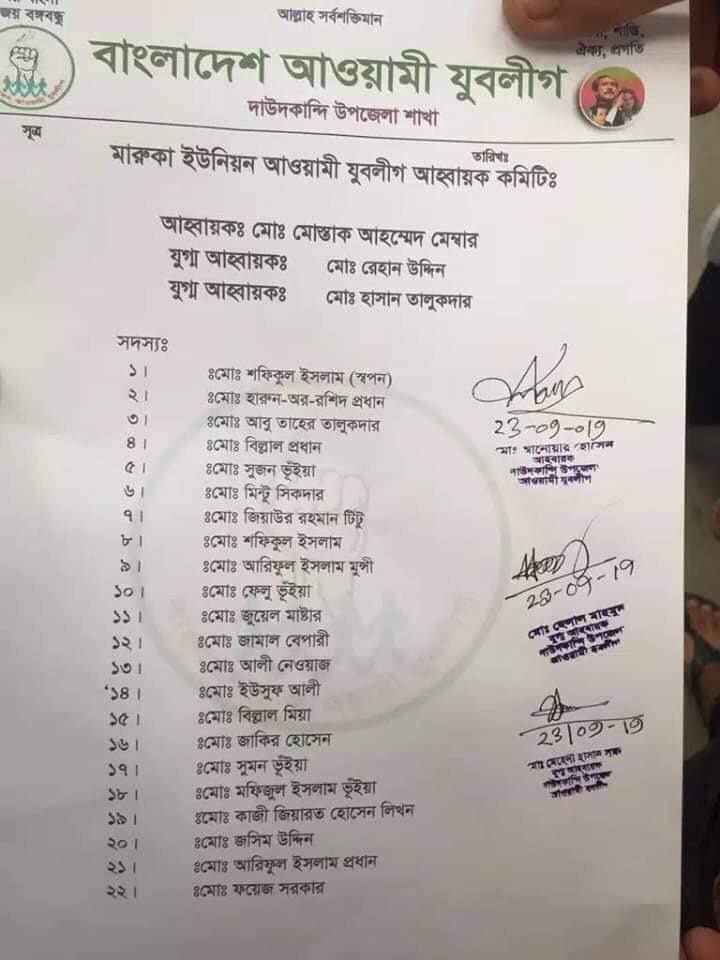 জয় বঙ্গবন্ধু
আল্লাহ সর্বশক্তিমান
শান্তি,
ঐক্য, প্রগতি
বাংলাদেশ আওয়ামী যুবলীগ
দাউদকান্দি উপজেলা শাখা
সূত্র
তারিখঃ
মারুকা ইউনিয়ন আওয়ামী যুবলীগ আহ্বায়ক কমিটিঃ
আহ্বায়কঃ মোঃ মোস্তাক আহম্মেদ মেম্বার
যুগ্ম আহ্বায়কঃ মোঃ রেহান উদ্দিন
যুগ্ম আহ্বায়কঃ মোঃ হাসান তালুকদার
সদস্যঃ
১। ঃমোঃ শফিকুল ইসলাম (স্বপন)
২। ঃমোঃ হারুন-অর-রশিদ প্রধান
৩। ঃমোঃ আবু তাহের তালুকদার
৪। ঃমোঃ বিল্লাল প্রধান
৫। ঃমোঃ সুজন ভূঁইয়া
৬। ঃমোঃ মিন্টু সিকদার
৭। ঃমোঃ জিয়াউর রহমান টিটু
৮। ঃমোঃ শফিকুল ইসলাম
৯। ঃমোঃ আরিফুল ইসলাম মুন্সী
১০। ঃমোঃ ফেলু ভূঁইয়া
১১। ঃমোঃ জুয়েল মাষ্টার
১২। ঃমোঃ জামাল বেপারী
১৩। ঃমোঃ আলী নেওয়াজ
১৪। ঃমোঃ ইউসুফ আলী
১৫। ঃমোঃ বিল্লাল মিয়া
১৬। ঃমোঃ জাকির হোসেন
১৭। ঃমোঃ সুমন ভূঁইয়া
১৮। ঃমোঃ মফিজুল ইসলাম ভূঁইয়া
১৯। ঃমোঃ কাজী জিয়ারত হোসেন লিখন
২০। ঃমোঃ জসিম উদ্দিন
২১। ঃমোঃ আরিফুল ইসলাম প্রধান
২২। ঃমোঃ ফয়েজ সরকার
23-09-019
মোঃ আনোয়ার হোসেন
আহবায়ক
দাউদকান্দি উপজেলা
আওয়ামী যুবলীগ
23-09-19
মোঃ হেলাল মাহমুদ
যুগ্ম আহবায়ক
দাউদকান্দি উপজেলা
আওয়ামী যুবলীগ
23/09-19
মোঃ মেহেদী হাসান
যুগ্ম আহবায়ক
দাউদকান্দি উপজেলা
আওয়ামী যুবলীগ